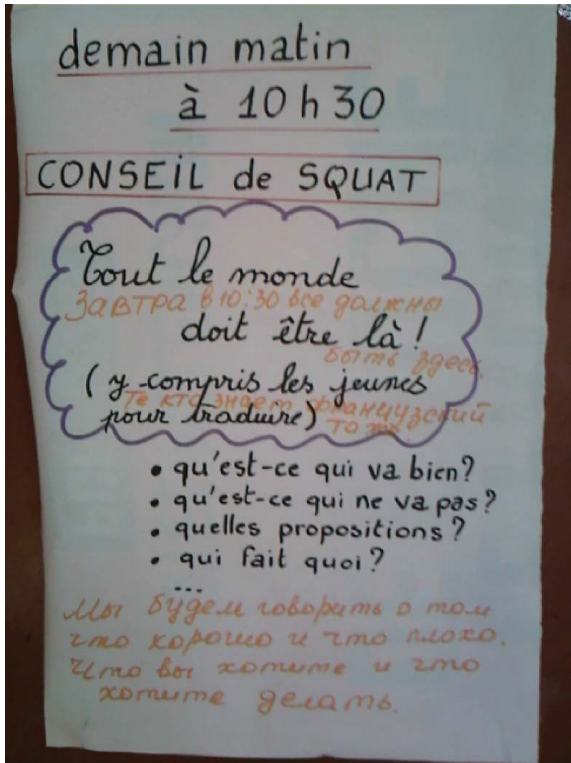 demain matin
à 10 h 30
CONSEIL de SQUAT
Tout le monde
Завтра в 10:30 все должны
doit être là !
быть здесь.
(y compris les jeunes
Те кто знает французский
pour traduire)
тоже.
• qu'est-ce qui va bien?
• qu'est-ce qui ne va pas?
• quelles propositions?
• qui fait quoi?
...
Мы будем говорить о том
что хорошо и что плохо.
Что вы хотите и что
хотите делать.